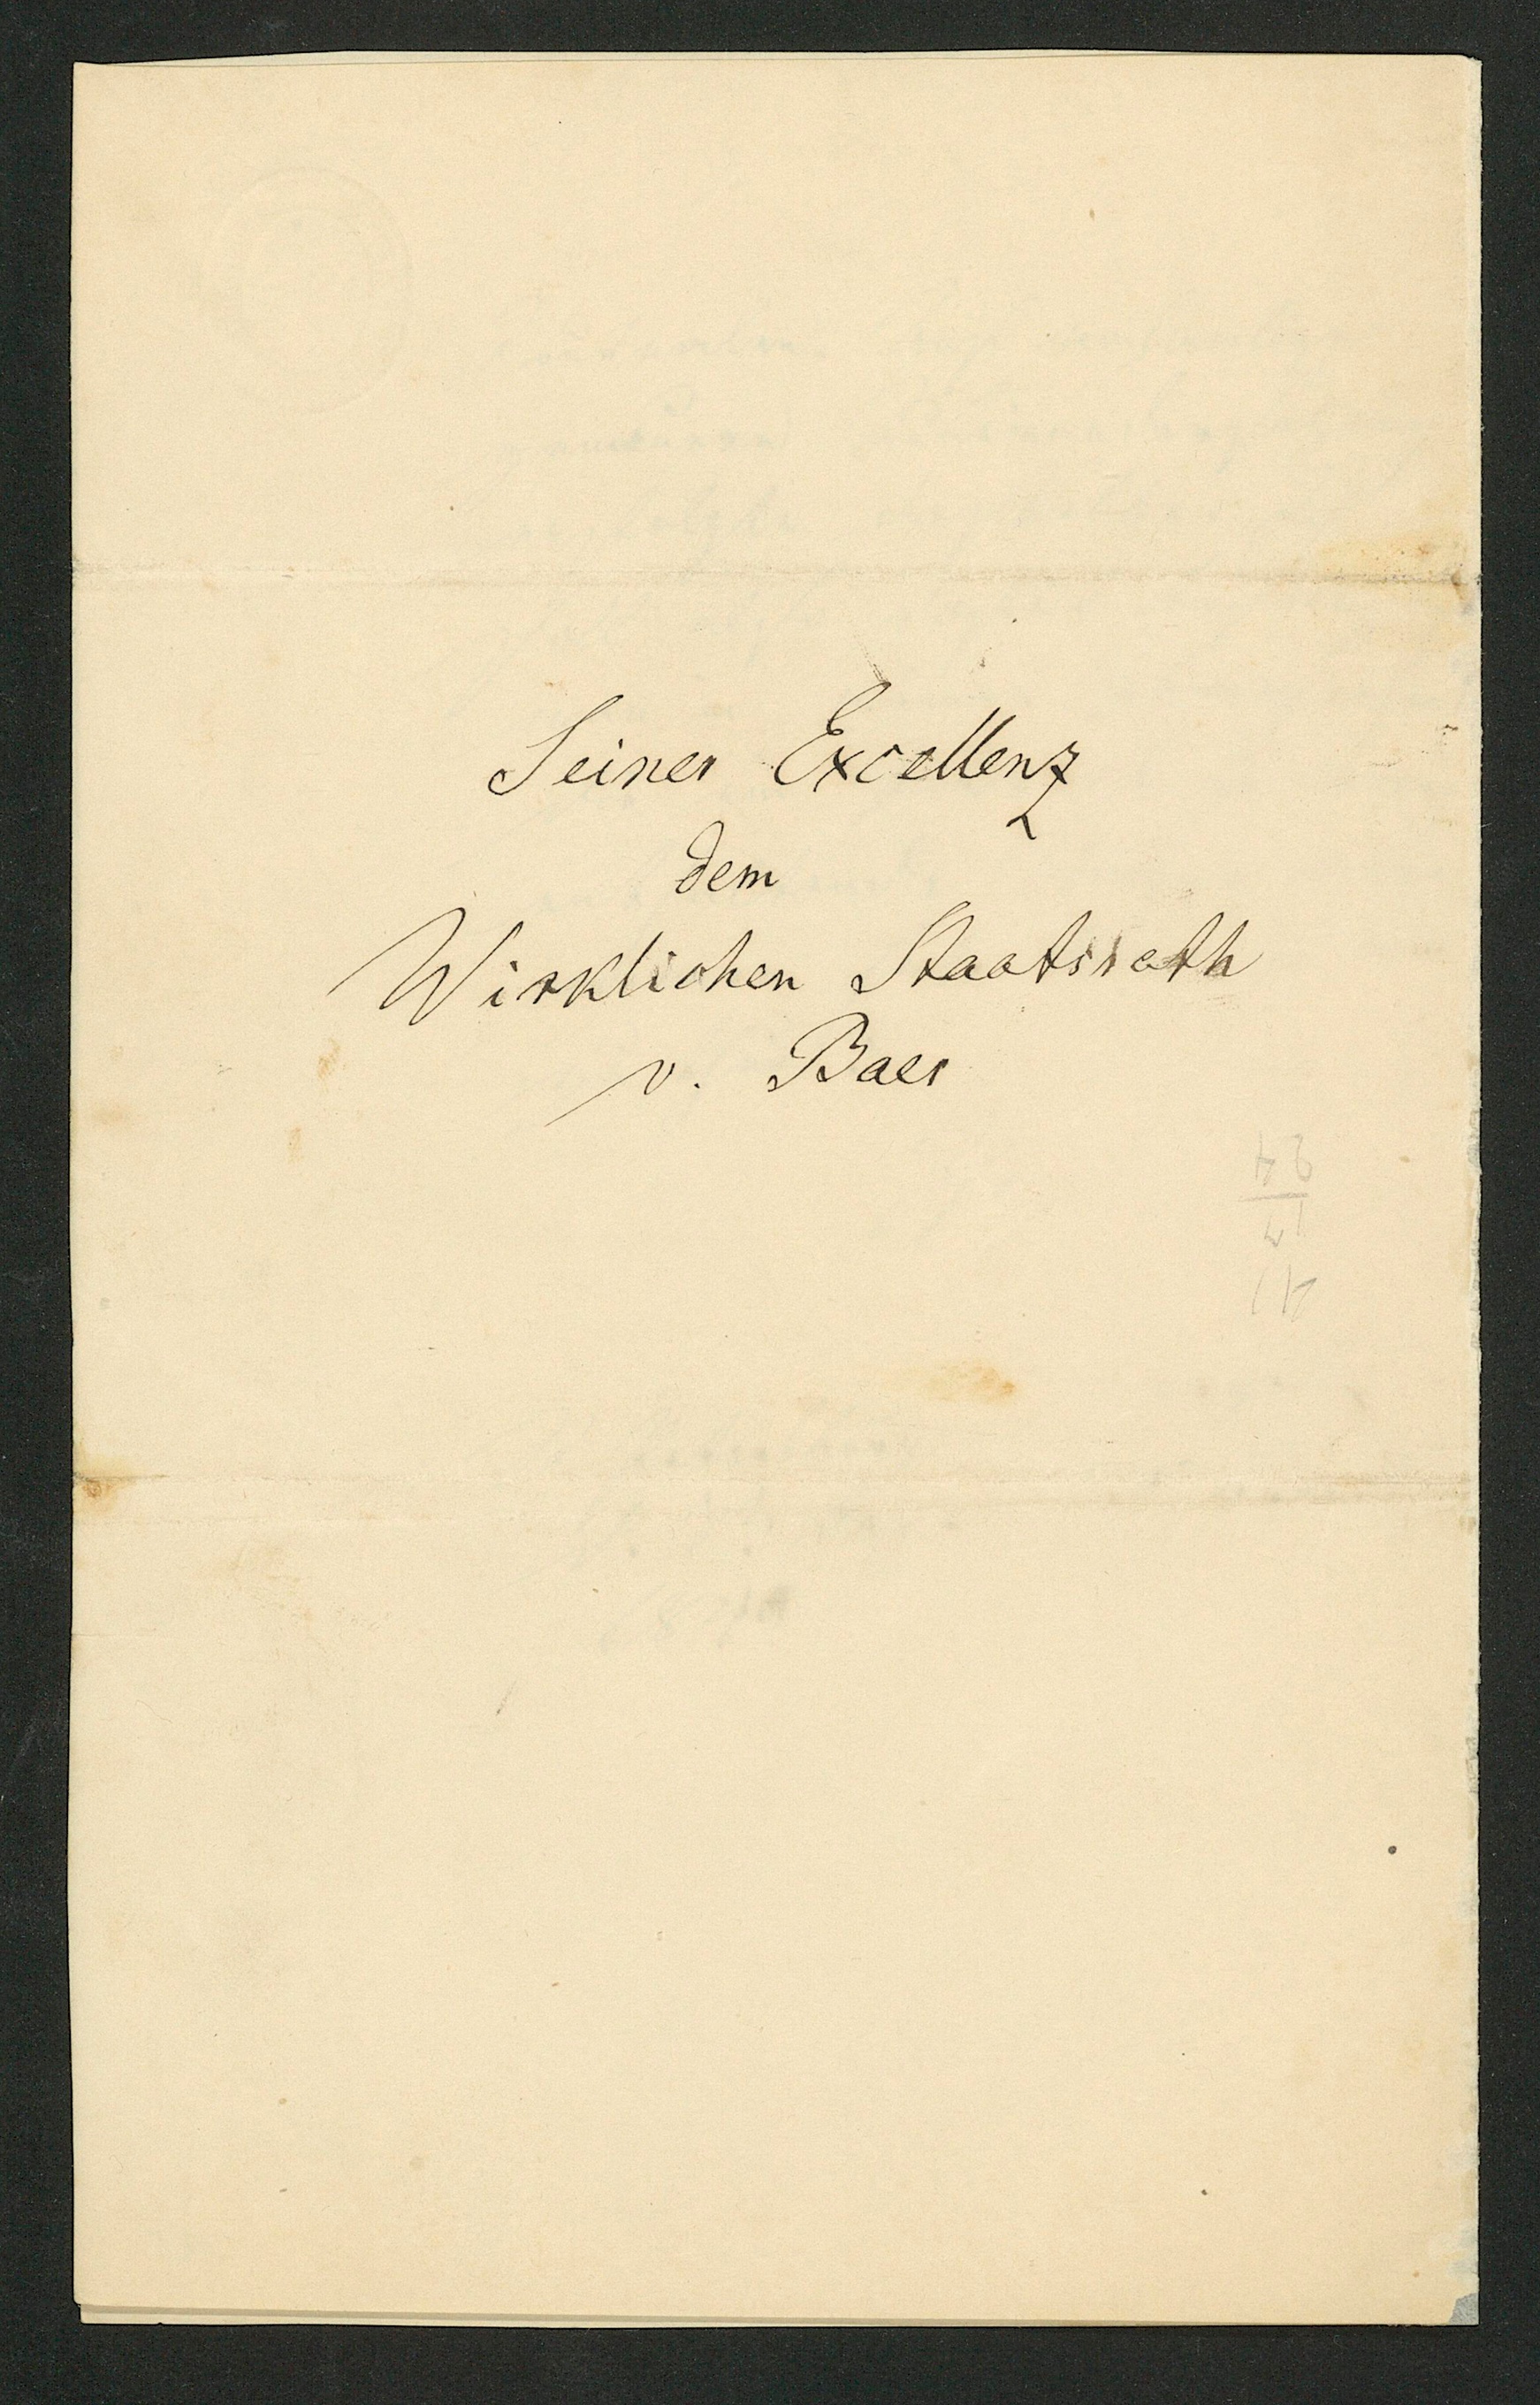 Seiner Excellenz
dem
Wirklichen Staatsrath
v. Baer